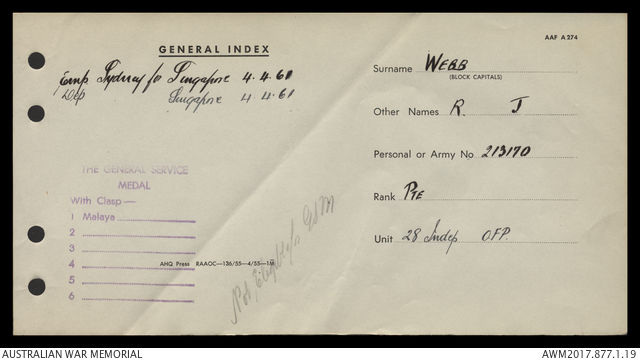 AAF A274
GENERAL INDEX
Emp Sydney for Singapore 4.4.61
Dep Singapore 4.4.61
THE GENERAL SERVICE
MEDAL
With Clasp—
1 Malaya
2
3
4
5
6
AHQ Press RAAOC—136/55—4/55—1M
Not Eligible for GSM
Surname WEBB
(BLOCK CAPITALS)
Other Names R. J
Personal or Army No 213170
Rank PTE
Unit 28 Indep OFP.
AUSTRALIAN WAR MEMORIAL
AWM2017.877.1.19